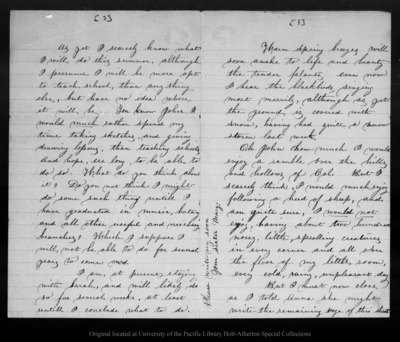 (2)
As yet I scarcely know what
I will do this summer, although
I presume I will be more apt
to teach school, than any thing
else, but have no idea where
it will be. You know John I
would much rather spend my
time taking sketches, and giving
drawing lessons, than teaching school,
and hope ere long to be able to
do so. What do you think about
it? Do you not think I might
do some such thing untill I
have graduated in music, botany
and all other useful and necessary
branches? Which I suppose I
will not be able to do for several
years to come
I am, at present staying
with Sarah, and will likely do
so for several weeks, at least
untill I conclude what to do.
Please write very soon
Your Sister Mary.
(3)
Warm spring breezes will
soon awake to life and beauty
the tender plants, even now
I hear the blackbirds, singing
most merrily, although as yet
the ground is covered with
snow, having had quite a snow
storm last week.
Oh John how much I would
enjoy a ramble over the hills
and hollows of Cal. But I
scarcely think, I would much enjoy
following a herd of sheep, and
am quite sure, I would not
enjoy, having about two hundred
noisy little, squalling creatures
in every corner and all over
the floor of my little room,
every cold, rainy, unpleasant day
But I must now close
as I told Anna she might
write the remaining page of this sheet
Original located at University of the Pacific Library Holt-Atherton Special Collections